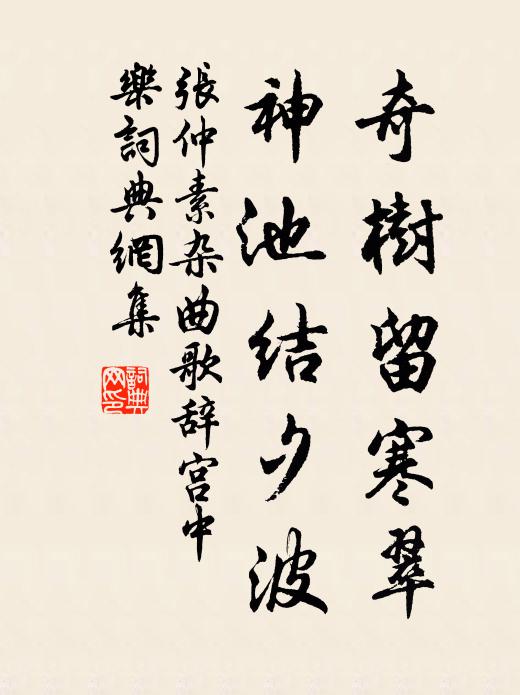 奇樹留寒翠
神池结夕波
張仲素杂曲歌辞宫中
樂詞典網集
詞典
网印